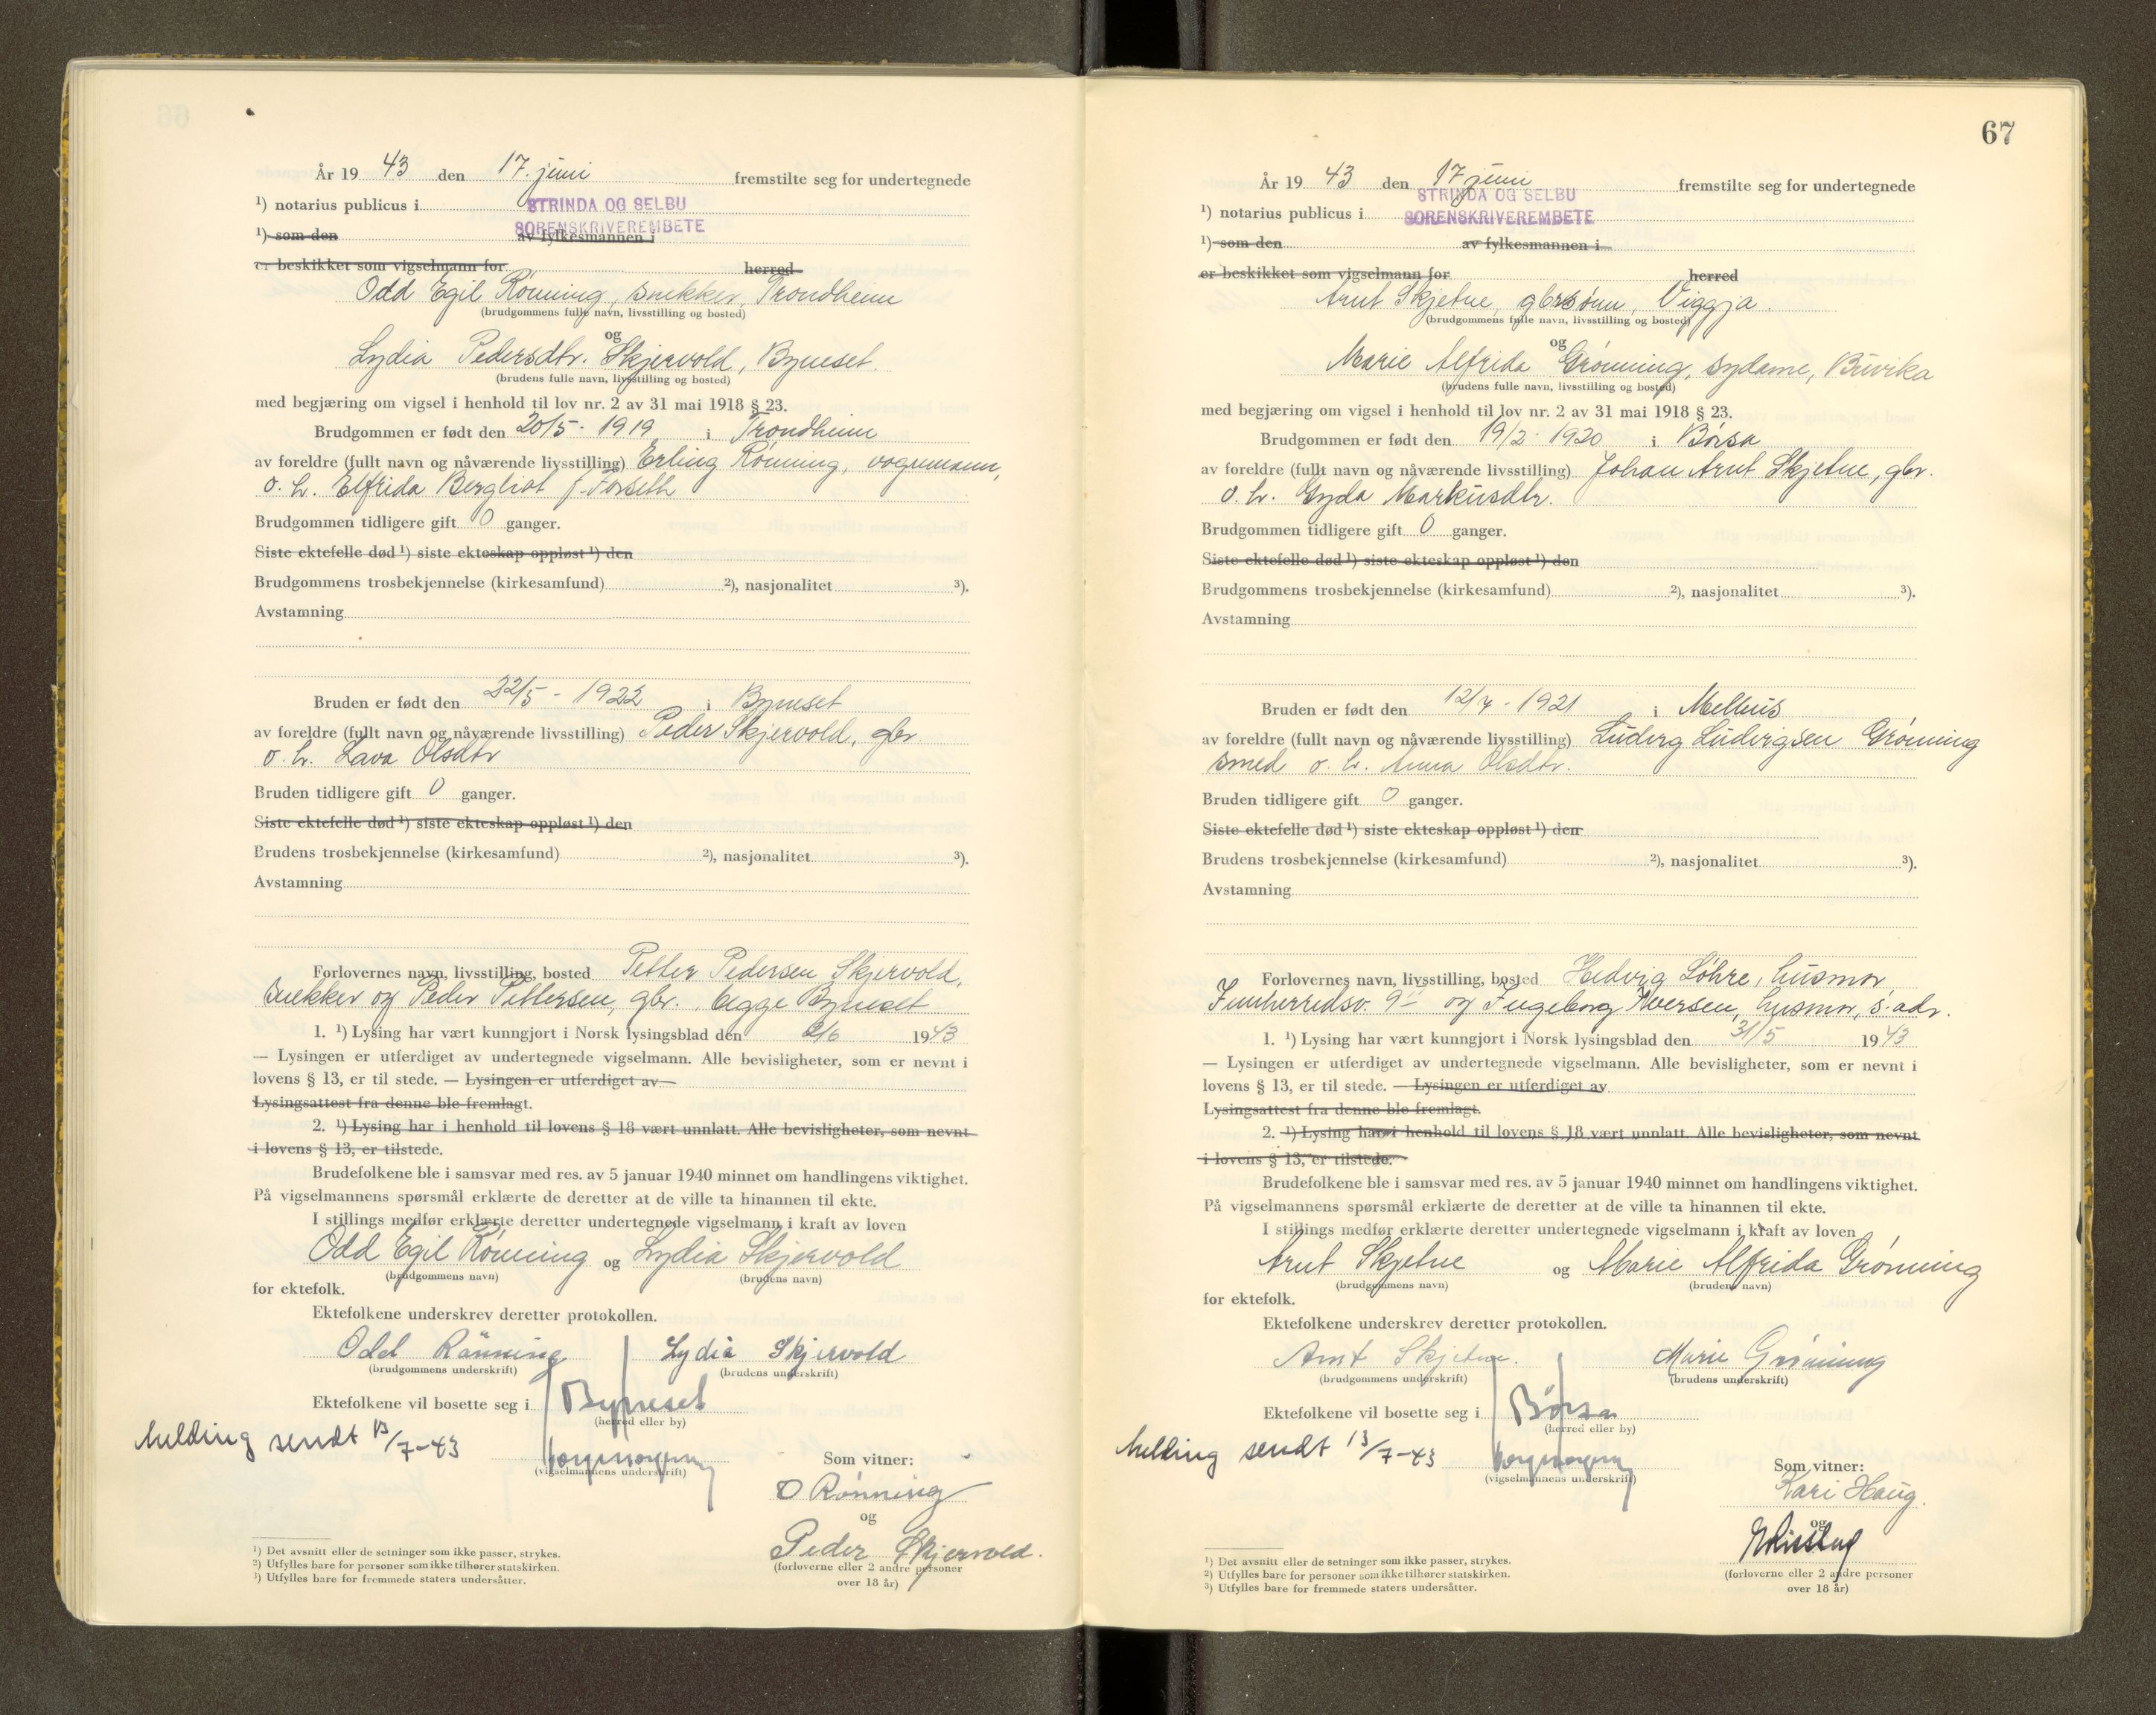 År 19 43 den 17. juni fremstilte seg for undertegnede
¹) notarius publicus i STRINDA OG SELBU
SORENSKRIVEREMBETE
¹) som den av fylkesmannen i
er beskikket som vigselmann for herred
Odd Egil Rönning, snekker, Trondheim
(brudgommens fulle navn, livsstilling og bosted)
og
Lydia Pedersdtr. Skjervold, Byneset.
(brudens fulle navn, livsstilling og bosted)
med begjæring om vigsel i henhold til lov nr. 2 av 31 mai 1918 § 23.
Brudgommen er født den 20/5 - 1919 i Trondheim
av foreldre (fullt navn og nåværende livsstilling) Erling Rönning, vognmann,
o. h. Elfrida Bergliot f. Forseth
Brudgommen tidligere gift 0 ganger.
Siste ektefelle død ¹) siste ekteskap oppløst ¹) den
Brudgommens trosbekjennelse (kirkesamfund) ²), nasjonalitet ³).
Avstamning
Bruden er født den 22/5 - 1922 i Byneset
av foreldre (fullt navn og nåværende livsstilling) Peder Skjervold, gbr.
o. h. Lava Olsdtr
Bruden tidligere gift 0 ganger.
Siste ektefelle død ¹) siste ekteskap oppløst ¹) den
Brudens trosbekjennelse (kirkesamfund) ²), nasjonalitet ³).
Avstamning
Forlovernes navn, livsstilling, bosted Petter Pedersen Skjervold,
snekker og Peder Pettersen, gbr. begge Byneset
1. ¹) Lysing har vært kunngjort i Norsk lysingsblad den 2/6 1943
— Lysingen er utferdiget av undertegnede vigselmann. Alle bevisligheter, som er nevnt i
lovens § 13, er til stede. — Lysingen er utferdiget av
Lysingsattest fra denne ble fremlagt.
2. ¹) Lysing har i henhold til lovens § 18 vært unnlatt. Alle bevisligheter, som nevnt
i lovens § 13, er tilstede.
Brudefolkene ble i samsvar med res. av 5 januar 1940 minnet om handlingens viktighet.
På vigselmannens spørsmål erklærte de deretter at de ville ta hinannen til ekte.
I stillings medfør erklærte deretter undertegnede vigselmann i kraft av loven
Odd Egil Rönning og Lydia Skjervold
(brudgommens navn) (brudens navn)
for ektefolk.
Ektefolkene underskrev deretter protokollen.
Odd Rönning Lydia Skjervold
(brudgommens underskrift) (brudens underskrift)
Ektefolkene vil bosette seg i Byneset
(herred eller by)
Melding sendt 13/7-43
(vigselmannens underskrift)
Som vitner:
O Rønning
og
Peder Skjervold.
(forloverne eller 2 andre personer
over 18 år)
¹) Det avsnitt eller de setninger som ikke passer, strykes.
²) Utfylles bare for personer som ikke tilhører statskirken.
³) Utfylles bare for fremmede staters undersåtter.
67
År 19 43 den 17 juni fremstilte seg for undertegnede
¹) notarius publicus i STRINDA OG SELBU
SORENSKRIVEREMBETE
¹) som den av fylkesmannen i
er beskikket som vigselmann for herred
Arnt Skjetne, gbrsönn, Viggja.
(brudgommens fulle navn, livsstilling og bosted)
og
Marie Alfrida Grönning, sydame, Buvika
(brudens fulle navn, livsstilling og bosted)
med begjæring om vigsel i henhold til lov nr. 2 av 31 mai 1918 § 23.
Brudgommen er født den 19/2 - 1920 i Börsa
av foreldre (fullt navn og nåværende livsstilling) Johan Arnt Skjetne, gbr.
o. h. Gyda Markusdtr.
Brudgommen tidligere gift 0 ganger.
Siste ektefelle død ¹) siste ekteskap oppløst ¹) den
Brudgommens trosbekjennelse (kirkesamfund) ²), nasjonalitet ³).
Avstamning
Bruden er født den 12/4 - 1921 i Melhus
av foreldre (fullt navn og nåværende livsstilling) Ludvig Ludvigsen Grönning
smed o. h. Anna Olsdtr.
Bruden tidligere gift 0 ganger.
Siste ektefelle død ¹) siste ekteskap oppløst ¹) den
Brudens trosbekjennelse (kirkesamfund) ²), nasjonalitet ³).
Avstamning
Forlovernes navn, livsstilling, bosted Hedvig Löhre, husmor
Innherredsv. og Ingeborg Iversen, husmor, s. adr.
1. ¹) Lysing har vært kunngjort i Norsk lysingsblad den 31/5 1943
— Lysingen er utferdiget av undertegnede vigselmann. Alle bevisligheter, som er nevnt i
lovens § 13, er til stede. — Lysingen er utferdiget av
Lysingsattest fra denne ble fremlagt.
2. ¹) Lysing har i henhold til lovens § 18 vært unnlatt. Alle bevisligheter, som nevnt
i lovens § 13, er tilstede.
Brudefolkene ble i samsvar med res. av 5 januar 1940 minnet om handlingens viktighet.
På vigselmannens spørsmål erklærte de deretter at de ville ta hinannen til ekte.
I stillings medfør erklærte deretter undertegnede vigselmann i kraft av loven
Arnt Skjetne og Marie Alfrida Grönning
(brudgommens navn) (brudens navn)
for ektefolk.
Ektefolkene underskrev deretter protokollen.
Arnt Skjetne. Marie Grönning
(brudgommens underskrift) (brudens underskrift)
Ektefolkene vil bosette seg i Börsa
(herred eller by)
Melding sendt 13/7-43
(vigselmannens underskrift)
Som vitner:
Kari Haug.
og
(forloverne eller 2 andre personer
over 18 år)
¹) Det avsnitt eller de setninger som ikke passer, strykes.
²) Utfylles bare for personer som ikke tilhører statskirken.
³) Utfylles bare for fremmede staters undersåtter.